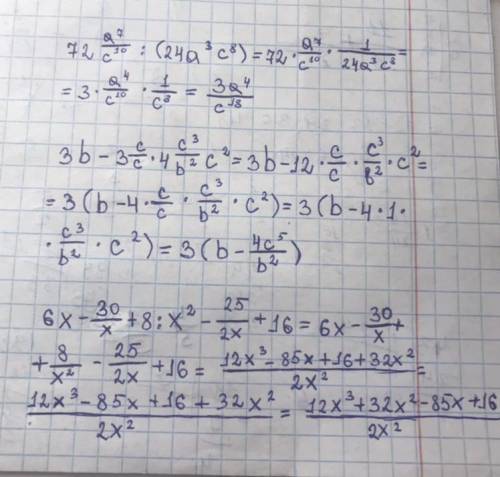 72 a⁷/c¹⁰ : (24a³c⁸) = 72 · a⁷/c¹⁰ · 1/24a³c⁸ =
= 3 · a⁴/c¹⁰ · 1/c⁸ = 3a⁴/c¹⁸
3b - 3 c/c · 4 c³/b² c² = 3b - 12 · c/c · c³/b² · c² =
= 3 (b - 4 · c/c · c³/b² · c²) = 3 (b - 4 · 1 ·
· c³/b² · c²) = 3 (b - 4c⁵/b²)
6x - 30/x + 8 : x² - 25/2x + 16 = 6x - 30/x +
+ 8/x² - 25/2x + 16 = 12x³ - 85x + 16 + 32x²/2x² =
12x³ - 85x + 16 + 32x²/2x² = 12x³ + 32x² - 85x + 16/2x²